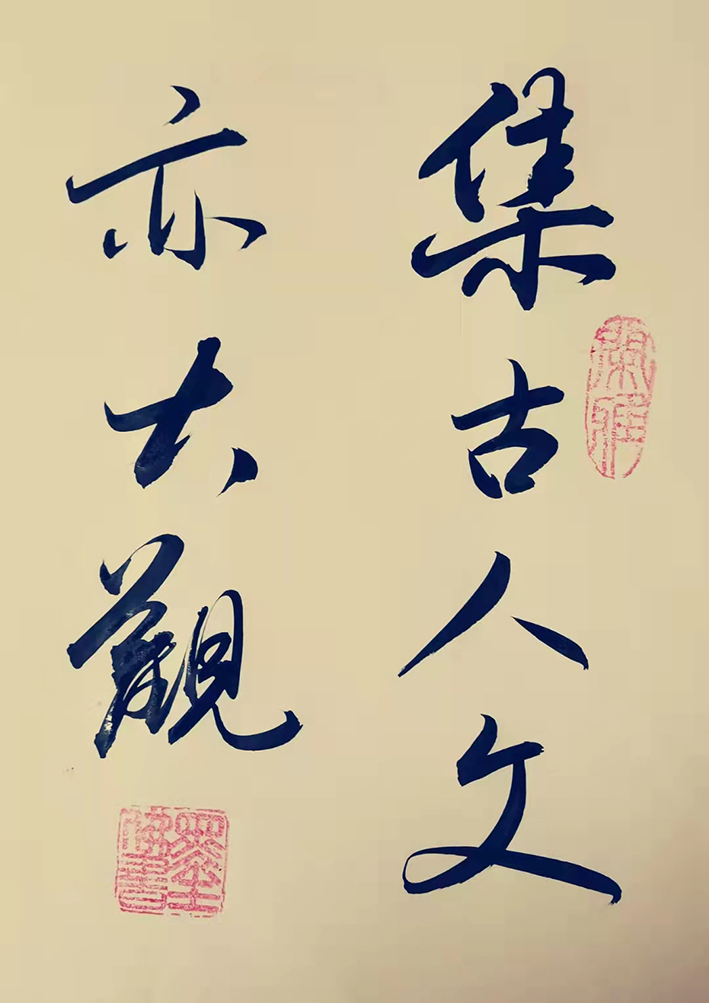 集古人文
亦大觀